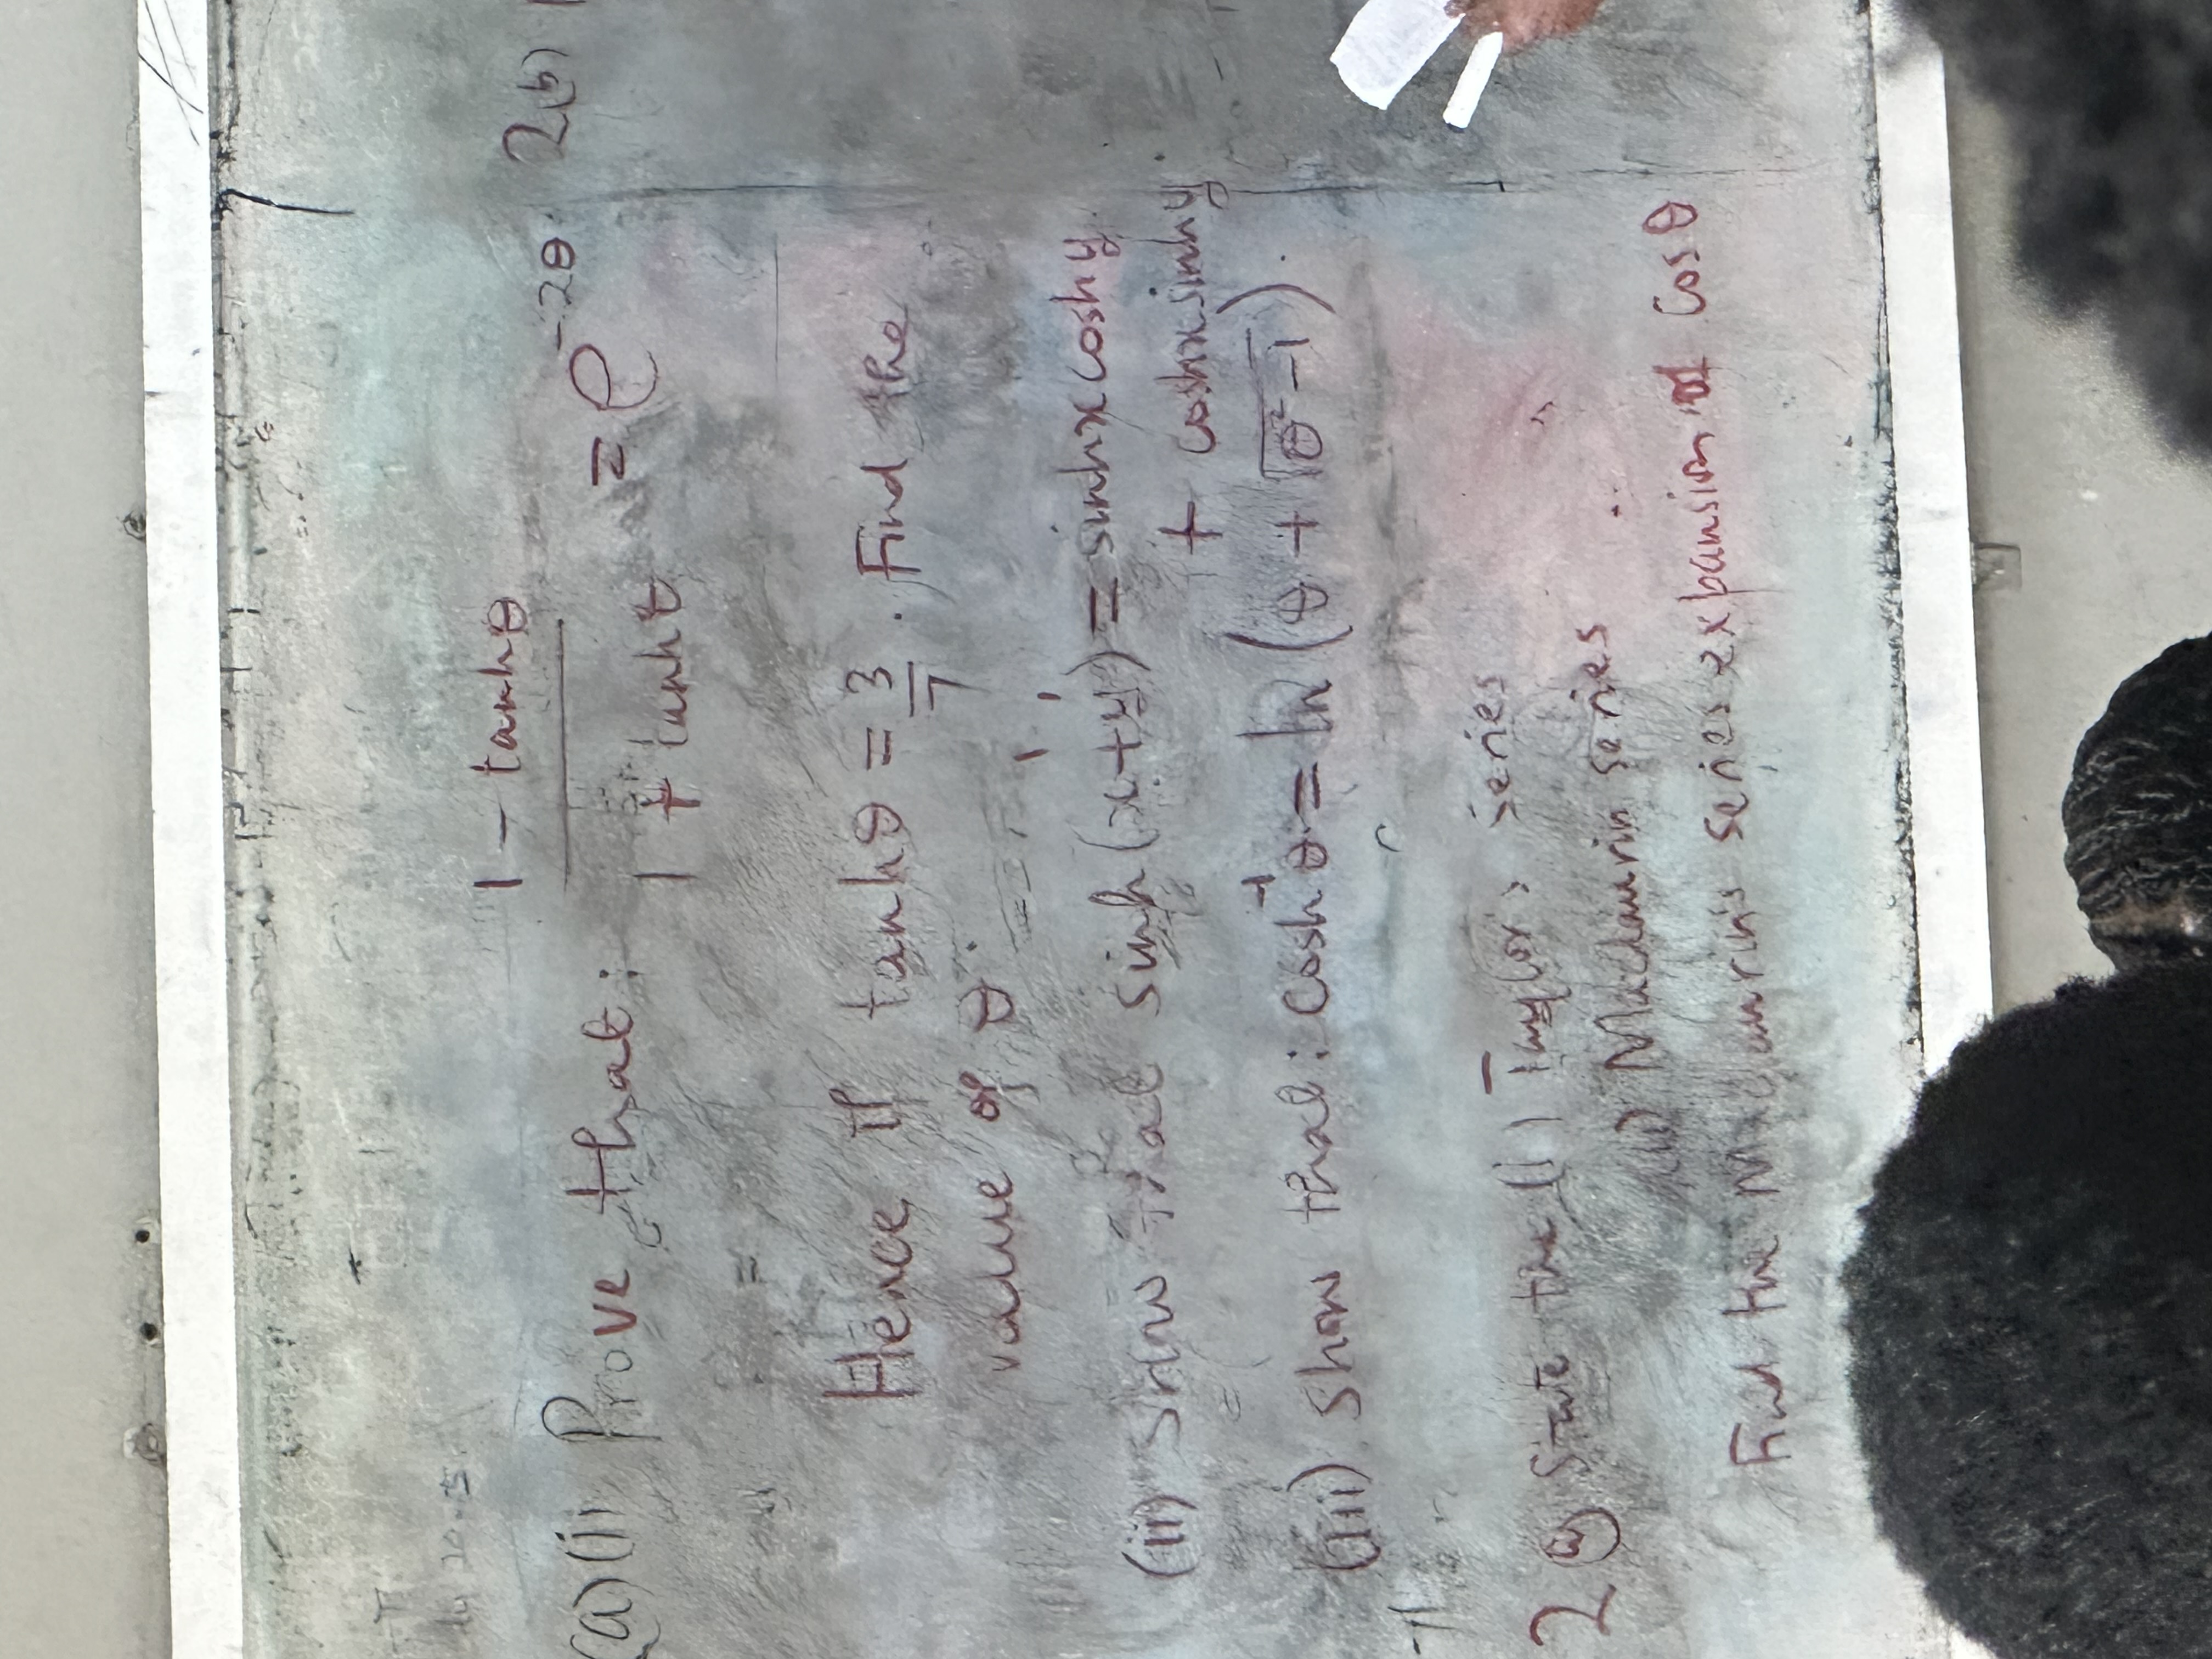 (a)(i) Prove that: 1 - tanhθ / 1 + tanht = e^-2θ
Hence if tanhθ = 3/7. Find the
value of θ.
(ii) Show that sinh(x+y) = sinhxcoshy
+ coshxsinhy
(iii) Show that: cosh^-1 θ = ln(θ + √θ²-1).
2(a) State the (i) Taylor's series
(ii) Maclaurin series
Find the Maclaurin's series expansion of Cosθ
2(b)